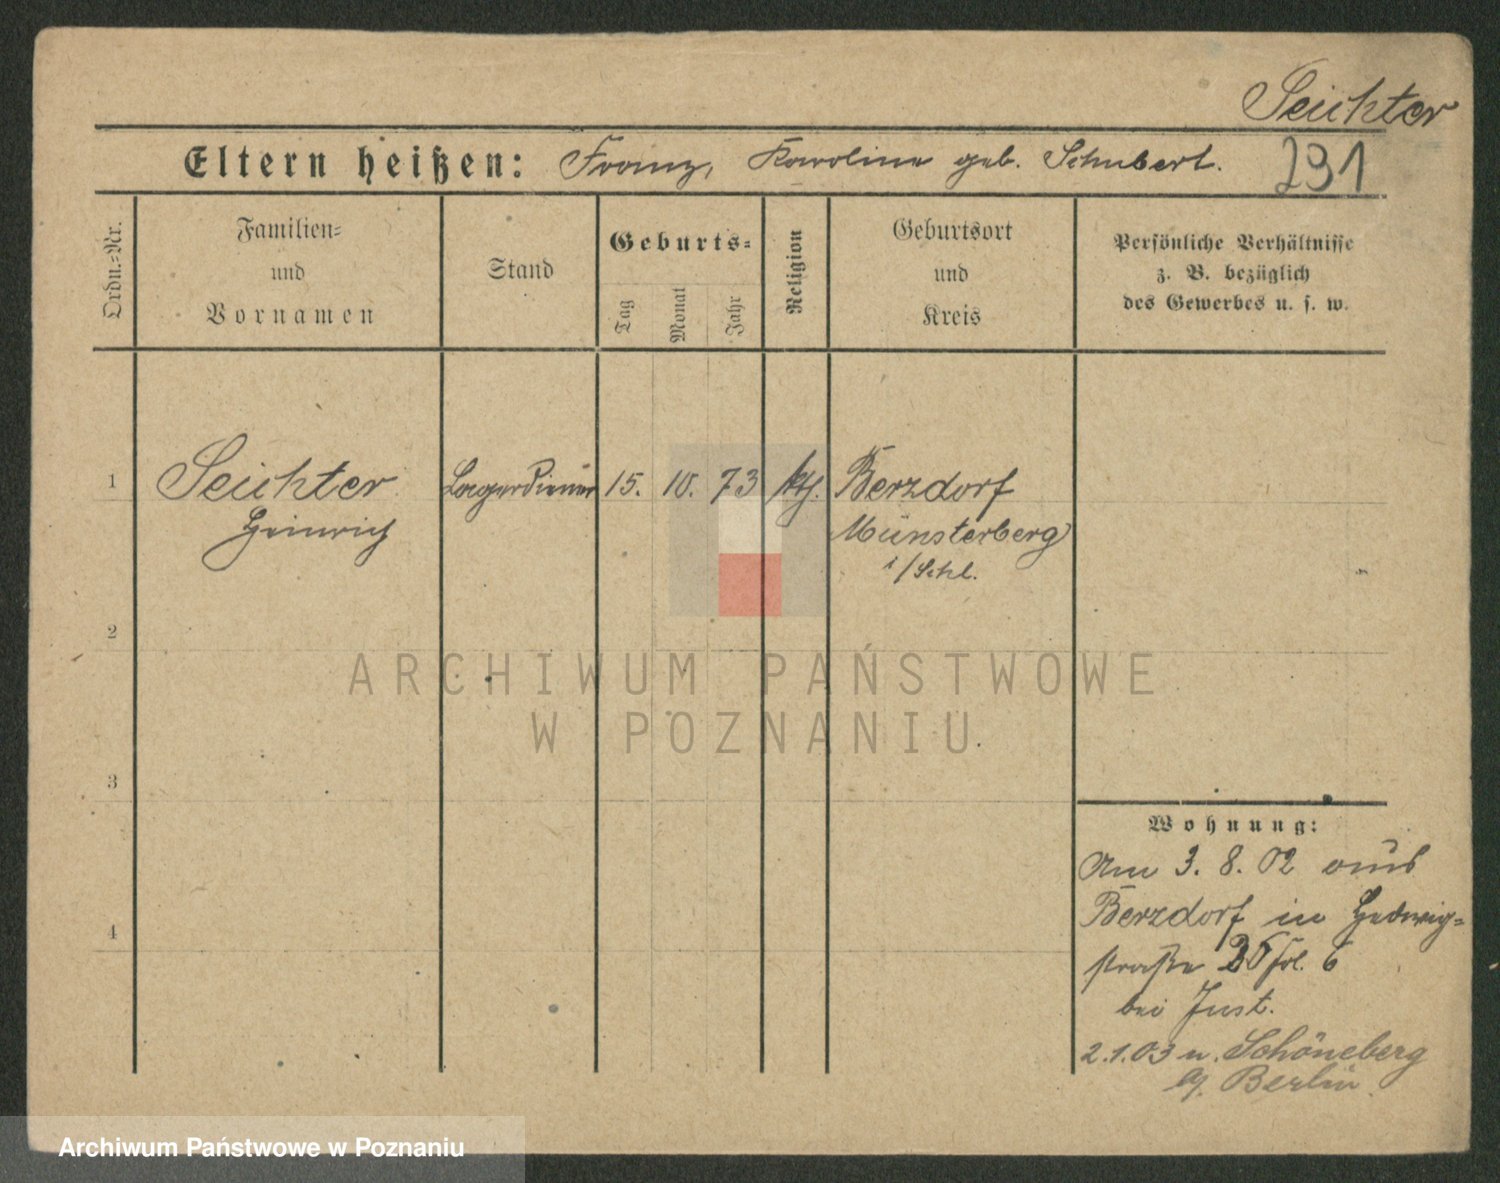 Seichter
Eltern heißen: Franz, Karoline geb. Schubert.
291
Ordn.-Nr.
Familien-
und
Vornamen
Stand
Geburts-
Tag
Monat
Jahr
Religion
Geburtsort
und
Kreis
Persönliche Verhältnisse
z. B. bezüglich
des Gewerbes u. s. w.
1 Seichter Lagerdiener 15. 10. 73 kth. Berzdorf
Heinrich Münsterberg
i/Schl.
2
ARCHIWUM PAŃSTWOWE
W POZNANIU
3
Wohnung:
Am 3. 8. 02 aus
4 Berzdorf in Hedwig-
straße 6
bei Just.
2.1.03 n. Schöneberg
b/. Berlin
Archiwum Państwowe w Poznaniu